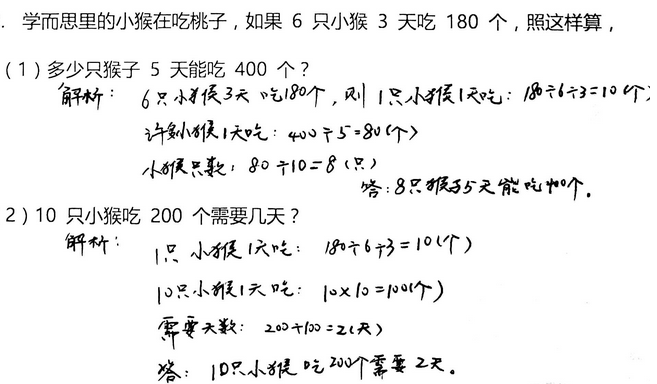 . 学而思里的小猴在吃桃子，如果 6 只小猴 3 天吃 180 个，照这样算，
（1）多少只猴子 5 天能吃 400 个？
解析： 6只小猴3天吃180个，则 1只小猴1天吃：180÷6÷3=10(个)
许多小猴1天吃：400÷5=80(个)
小猴只数：80÷10=8(只)
答：8只猴子5天能吃400个。
2）10 只小猴吃 200 个需要几天？
解析： 1只小猴1天吃：180÷6÷3=10(个)
10只小猴1天吃：10×10=100(个)
需要天数：200÷100=2(天)
答：10只小猴吃200个需要2天。